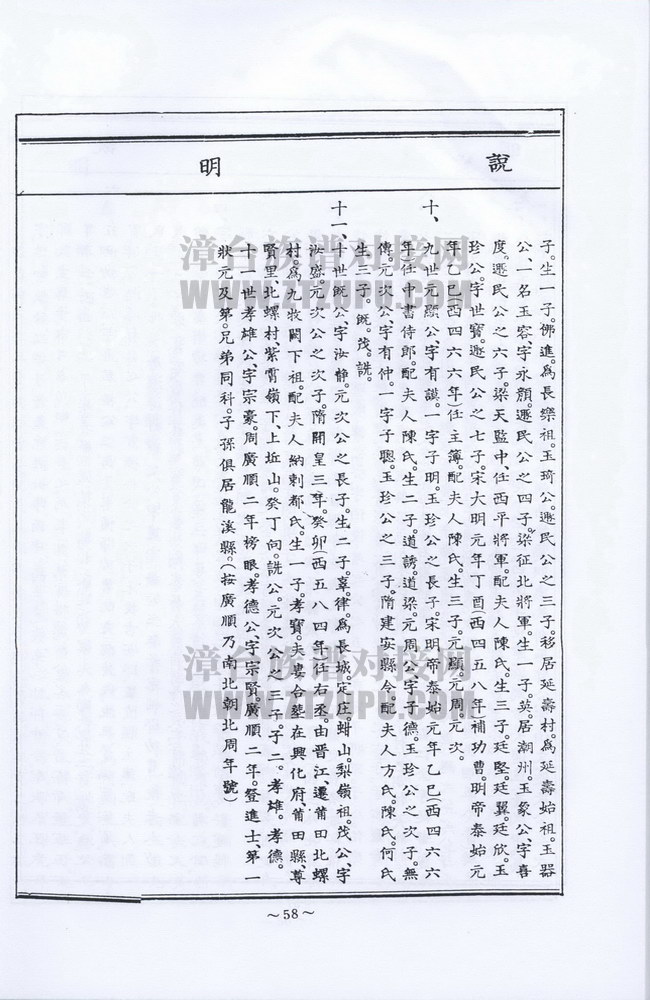 說明
子。生一子。佛進。為長樂祖。玉琦公。遯民公之三子。移居延壽村。為延壽始祖。玉器
公、一名玉容、字永顏。遯民公之四子。梁征北將軍。生一子。英。居潮州。玉象公、字喜
度。遯民公之六子。梁天監中、任西平將軍。配夫人陳氏。生三子。廷堅。廷翼。廷欣。玉
珍公、字世寶。遯民公之七子。宋大明元年丁酉（西四五八年補功曹。明帝泰始元
年乙巳西四六六年）任主簿。配夫人陳氏。生三子。元顯元周元次。
十、九世元顯公、字有謨。一字子明。玉珍公之長子。宋明帝泰始元年乙巳（西四六六
年任中書侍郎。配夫人陳氏。生二子。道誘。道梁。元周公、字子德。玉珍公之次子。無
傳。元次公字有仲。一字子聰。玉珍公之三子。隋建安縣令。配夫人方氏。陳氏。何氏
生三子。既。茂。詵。
十一、十世既公、字汝靜。元次公之長子。生二子。辜。律。為長城。定庄。蚶山。梨嶺祖。茂公、字
汝盛元次公之次子。隋開皇三年。癸卯（西五八四年任右丞。由晋江、遷莆田北螺
村。為九牧闕下祖。配夫人納剌都氏。生一子。孝寶。夫妻合塟在興化府、莆田縣、尊
賢里、北螺村、紫霄嶺下、上坵山。癸丁向。詵公。元次公之三子。子二。孝雄。孝德。
十一世孝雄公、字宗豪。周廣順二年榜眼。孝德公、字宗賢。廣順二年。登進士、第一
狀元及第。兄弟同科。子孫俱居龍溪縣。（按廣順乃南北朝北周年號）
～58～
漳台族谱对接网
WWW.ZTZUPU.COM
漳台族谱对接网
WWW.ZTZUPU.COM